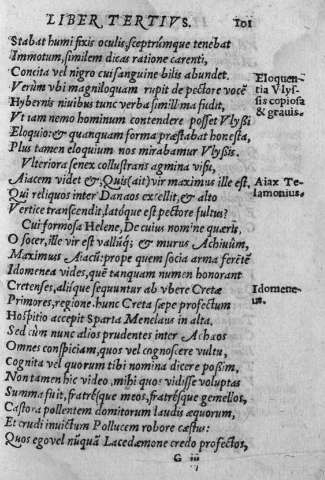 LIBER TERTIVS. 101
Stabat humi fixis oculis, sceptrúmque tenêbat
Immotum, similem dicas ratione carenti,
Concita vel nigro cui sanguine bilis abundet.
Verùm vbi magniloquam rupit de pectore vocē
Hybernis niuibus tunc verba simillima fudit,
Vt tam nemo hominum contendere posset Vlyssi
Eloquio: & quanquam forma præstabat honesta,
Plus tamen eloquium nos mirabamur Vlyssis.
Eloquen-
tia Vlys-
sis copiosa
& grauis.
Vlteriora senex collustrans agmina visu,
Aiacem videt &, Quis (ait) vir maximus ille est,
Qui reliquos inter Danaos excellit, & alto
Vertice transcendit, latóque est pectore fultus?
Aiax Te-
lamonius.
Cui formosa Helene, De cuius nomine quæris,
O socer, ille vir est vallúq; & murus Achiuûm,
Maximus Aiacū: prope quem socia arma ferētē
Idomenea vides, quē tanquam numen honorant
Cretenses, aliíque sequuntur ab vbere Cretæ
Primores, regione. hunc Creta sæpe profectum
Hospitio accepit Sparta Menelaus in alta.
Idomene-
us.
Sed cùm nunc alios prudentes inter Achæos
Omnes conspiciam, quos vel cognoscere vultu,
Cognita vel quorum tibi nomina dicere possim,
Non tamen hic video, mihi quos vidisse voluptas
Summa fuit, fratrésque meos, fratrésque gemellos,
Castora pollentem domitorum laudis æquorum,
Et crudi inuictum Pollucem robore cæstus:
Quos ego vel nūquā Lacedæmone credo profectos,
G iij